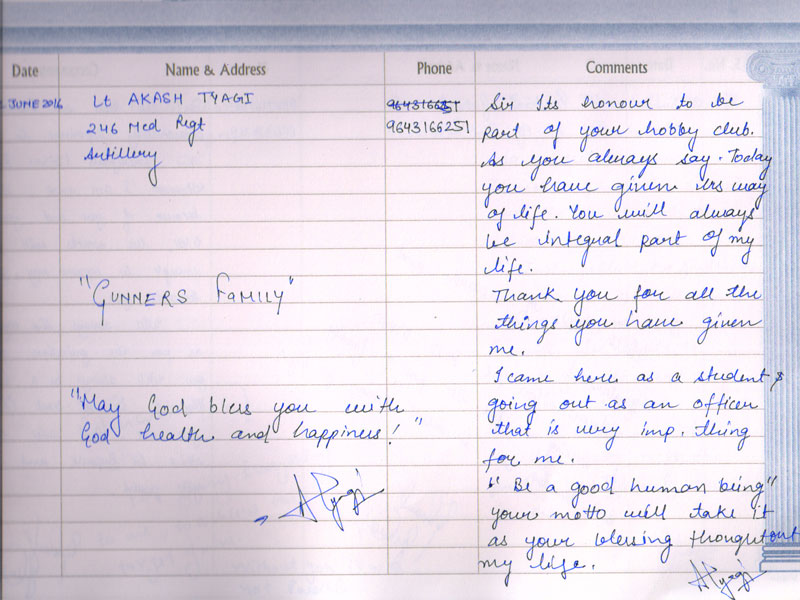 Date Name & Address Phone Comments
JUNE 2016 Lt AKASH TYAGI 9643166251 Sir Its honour to be
246 Med Regt 9643166251 part of your hobby club.
Artillery As you always say. Today
you have given us way
of life. You will always
be integral part of my
life.
"GUNNERS FAMILY" Thank you for all the
things you have given
me.
I came here as a student &
"May God bless you with going out as an officer
God health and happiness!" that is very imp. thing
for me.
"Be a good human being"
your motto will take it
as your blessing thoughtout
my life.
ATyagi
ATyagi